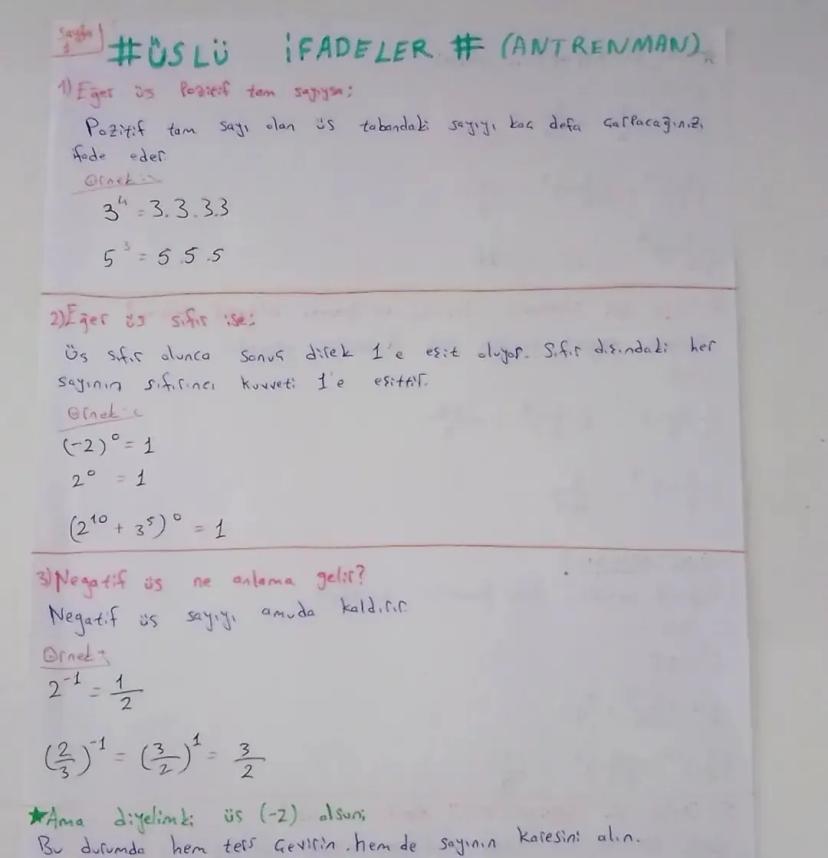 Sayfa 1
#ÜSLÜ İFADELER # (ANTRENMAN)
1) Eğer üs Pozitif tam sayıysa;
Pozitif tam sayı olan üs tabandaki sayıyı kaç defa çarpacağınızı
ifade eder
Örnek:
3⁴ = 3.3.3.3
5³ = 5.5.5
2) Eğer üs sıfır ise:
Üs sıfır olunca sonuç direk 1'e eşit oluyor. Sıfır dışındaki her
sayının sıfırıncı kuvveti 1'e eşittir.
Örnek:
(-2)⁰ = 1
2⁰ = 1
(2¹⁰ + 3⁵)⁰ = 1
3) Negatif üs ne anlama gelir?
Negatif üs sayıyı amuda kaldırır
Örnek:
2⁻¹ = 1/2
(2/3)⁻¹ = (3/2)¹ = 3/2
★Ama diyelimki üs (-2) olsun;
Bu durumda hem ters çevirin.hem de sayının karesini alın.